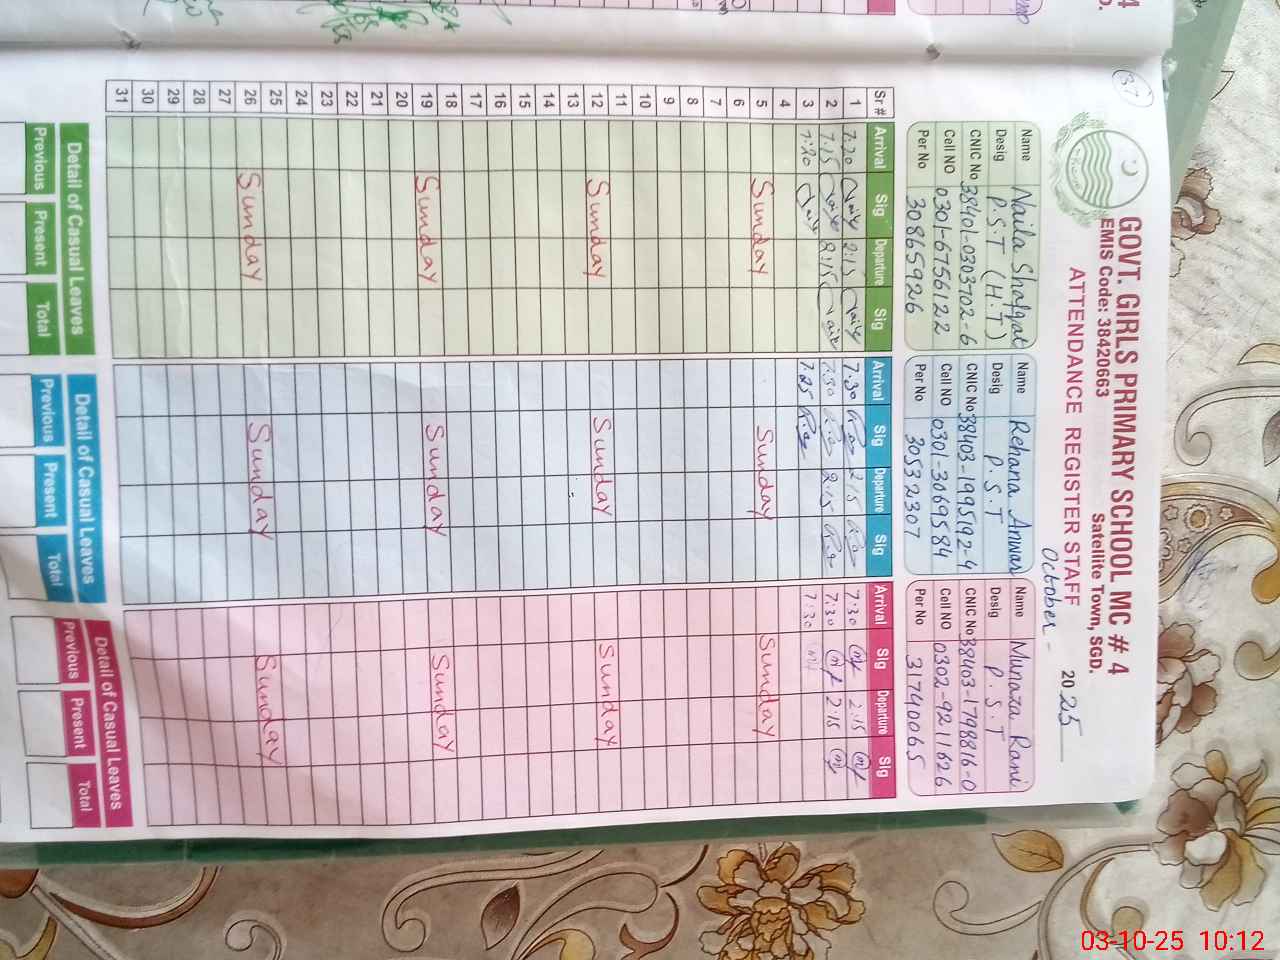 37
GOVT. GIRLS PRIMARY SCHOOL MC # 4
EMIS Code: 38420663 Satellite Town, SGD.
ATTENDANCE REGISTER STAFF October - 2025
Name Naila Shafqat
Desig P.S.T (H.T)
CNIC No 38401-0303702-6
Cell NO 0301-6756122
Per No 30865926
Name Rehana Anwar
Desig P.S.T
CNIC No 38403-1995192-4
Cell NO 0301-3069584
Per No 30532307
Name Munaza Rani
Desig P.S.T
CNIC No 38403-1798816-0
Cell NO 0302-9211626
Per No 31740065
Sr # Arrival Sig Departure Sig Arrival Sig Departure Sig Arrival Sig Departure Sig
1 7:20 2:15 7.30 215 7:30 2:15
2 7:15 2:15 7:30 2:15 7:30 2:15
3 7:20 7.25 7:30
4
5 Sunday Sunday Sunday
6
7
8
9
10
11
12 Sunday Sunday Sunday
13
14
15
16
17
18
19 Sunday Sunday Sunday
20
21
22
23
24
25
26 Sunday Sunday Sunday
27
28
29
30
31
Detail of Casual Leaves Detail of Casual Leaves Detail of Casual Leaves
Previous Present Total Previous Present Total Previous Present Total
03-10-25 10:12